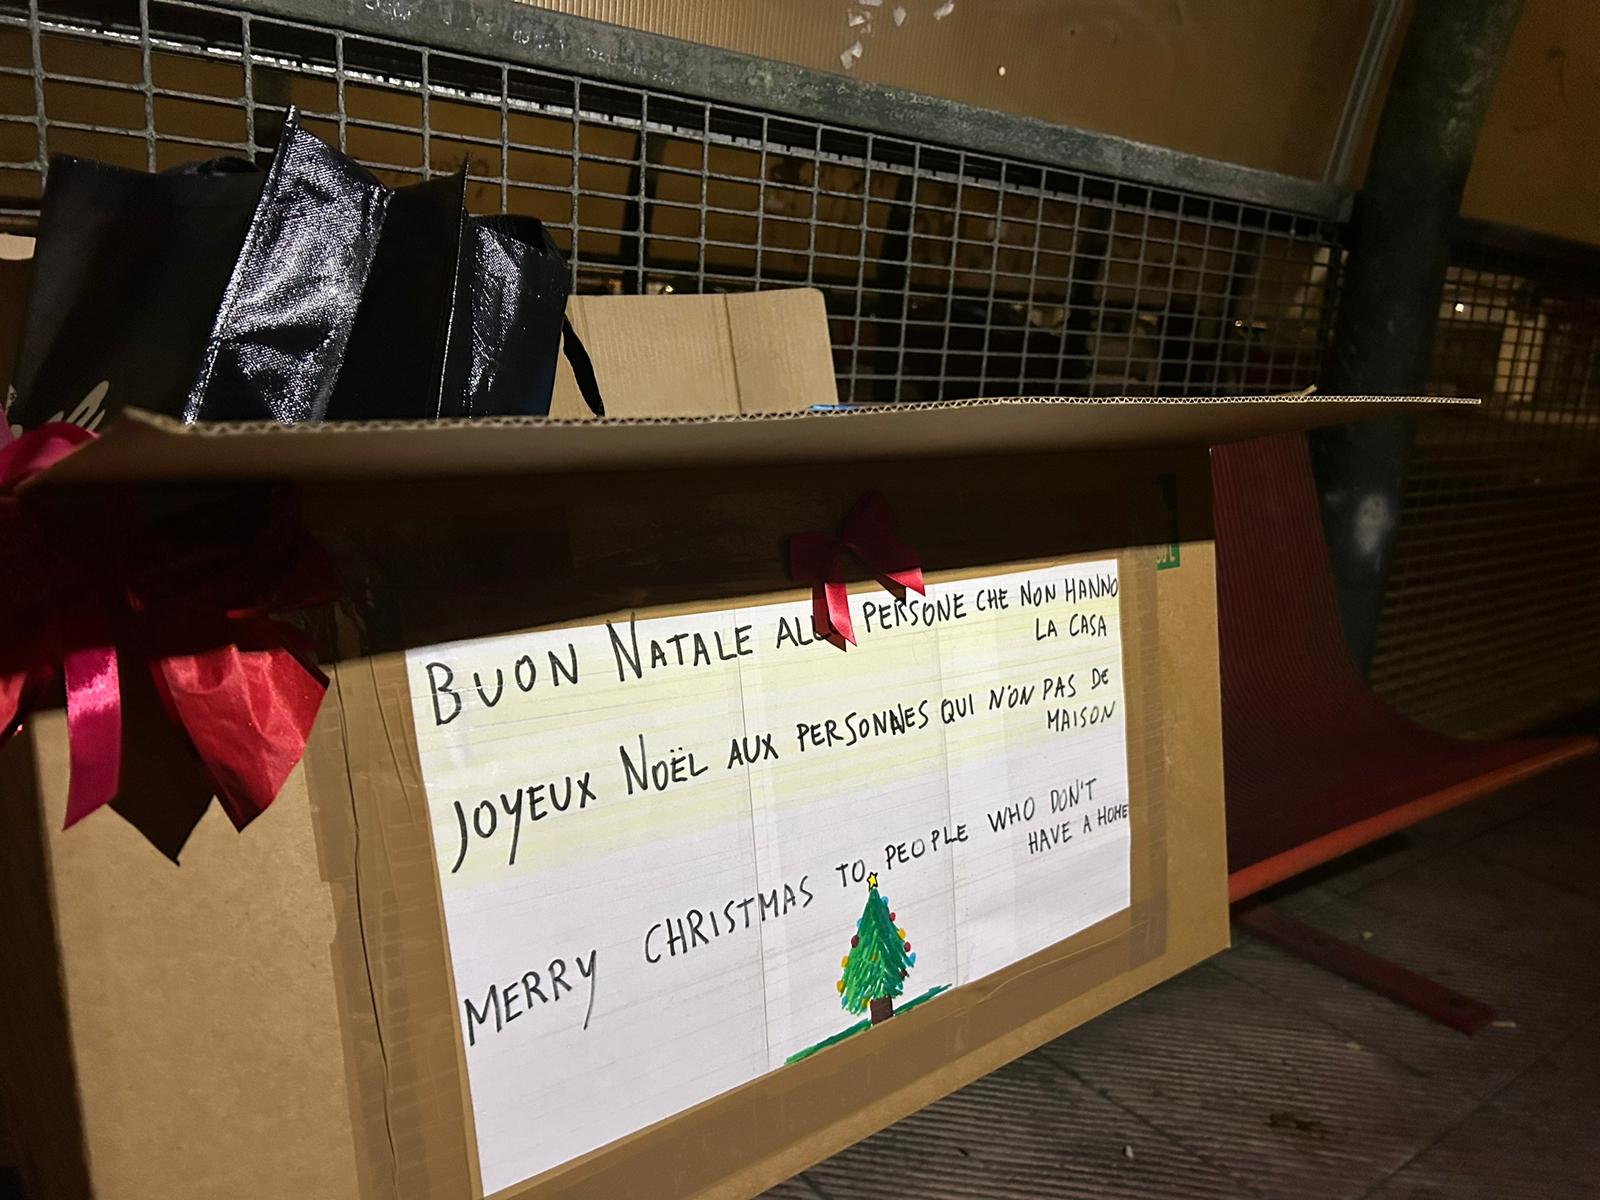 BUON NATALE ALLE PERSONE CHE NON HANNO
LA CASA
JOYEUX NOËL AUX PERSONNES QUI N'ON PAS DE
MAISON
MERRY CHRISTMAS TO PEOPLE WHO DON'T
HAVE A HOME